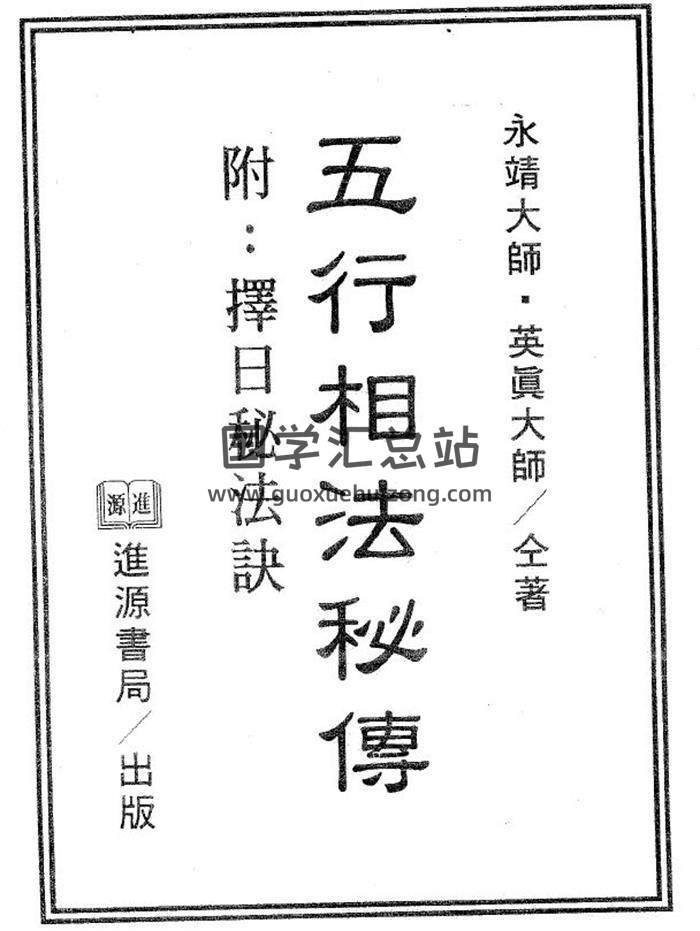 永靖大師・英眞大師／仝著
五行相法秘傳
附：擇日秘法訣
進源
進源書局／出版
国学汇总站
www.guoxuehuizong.com